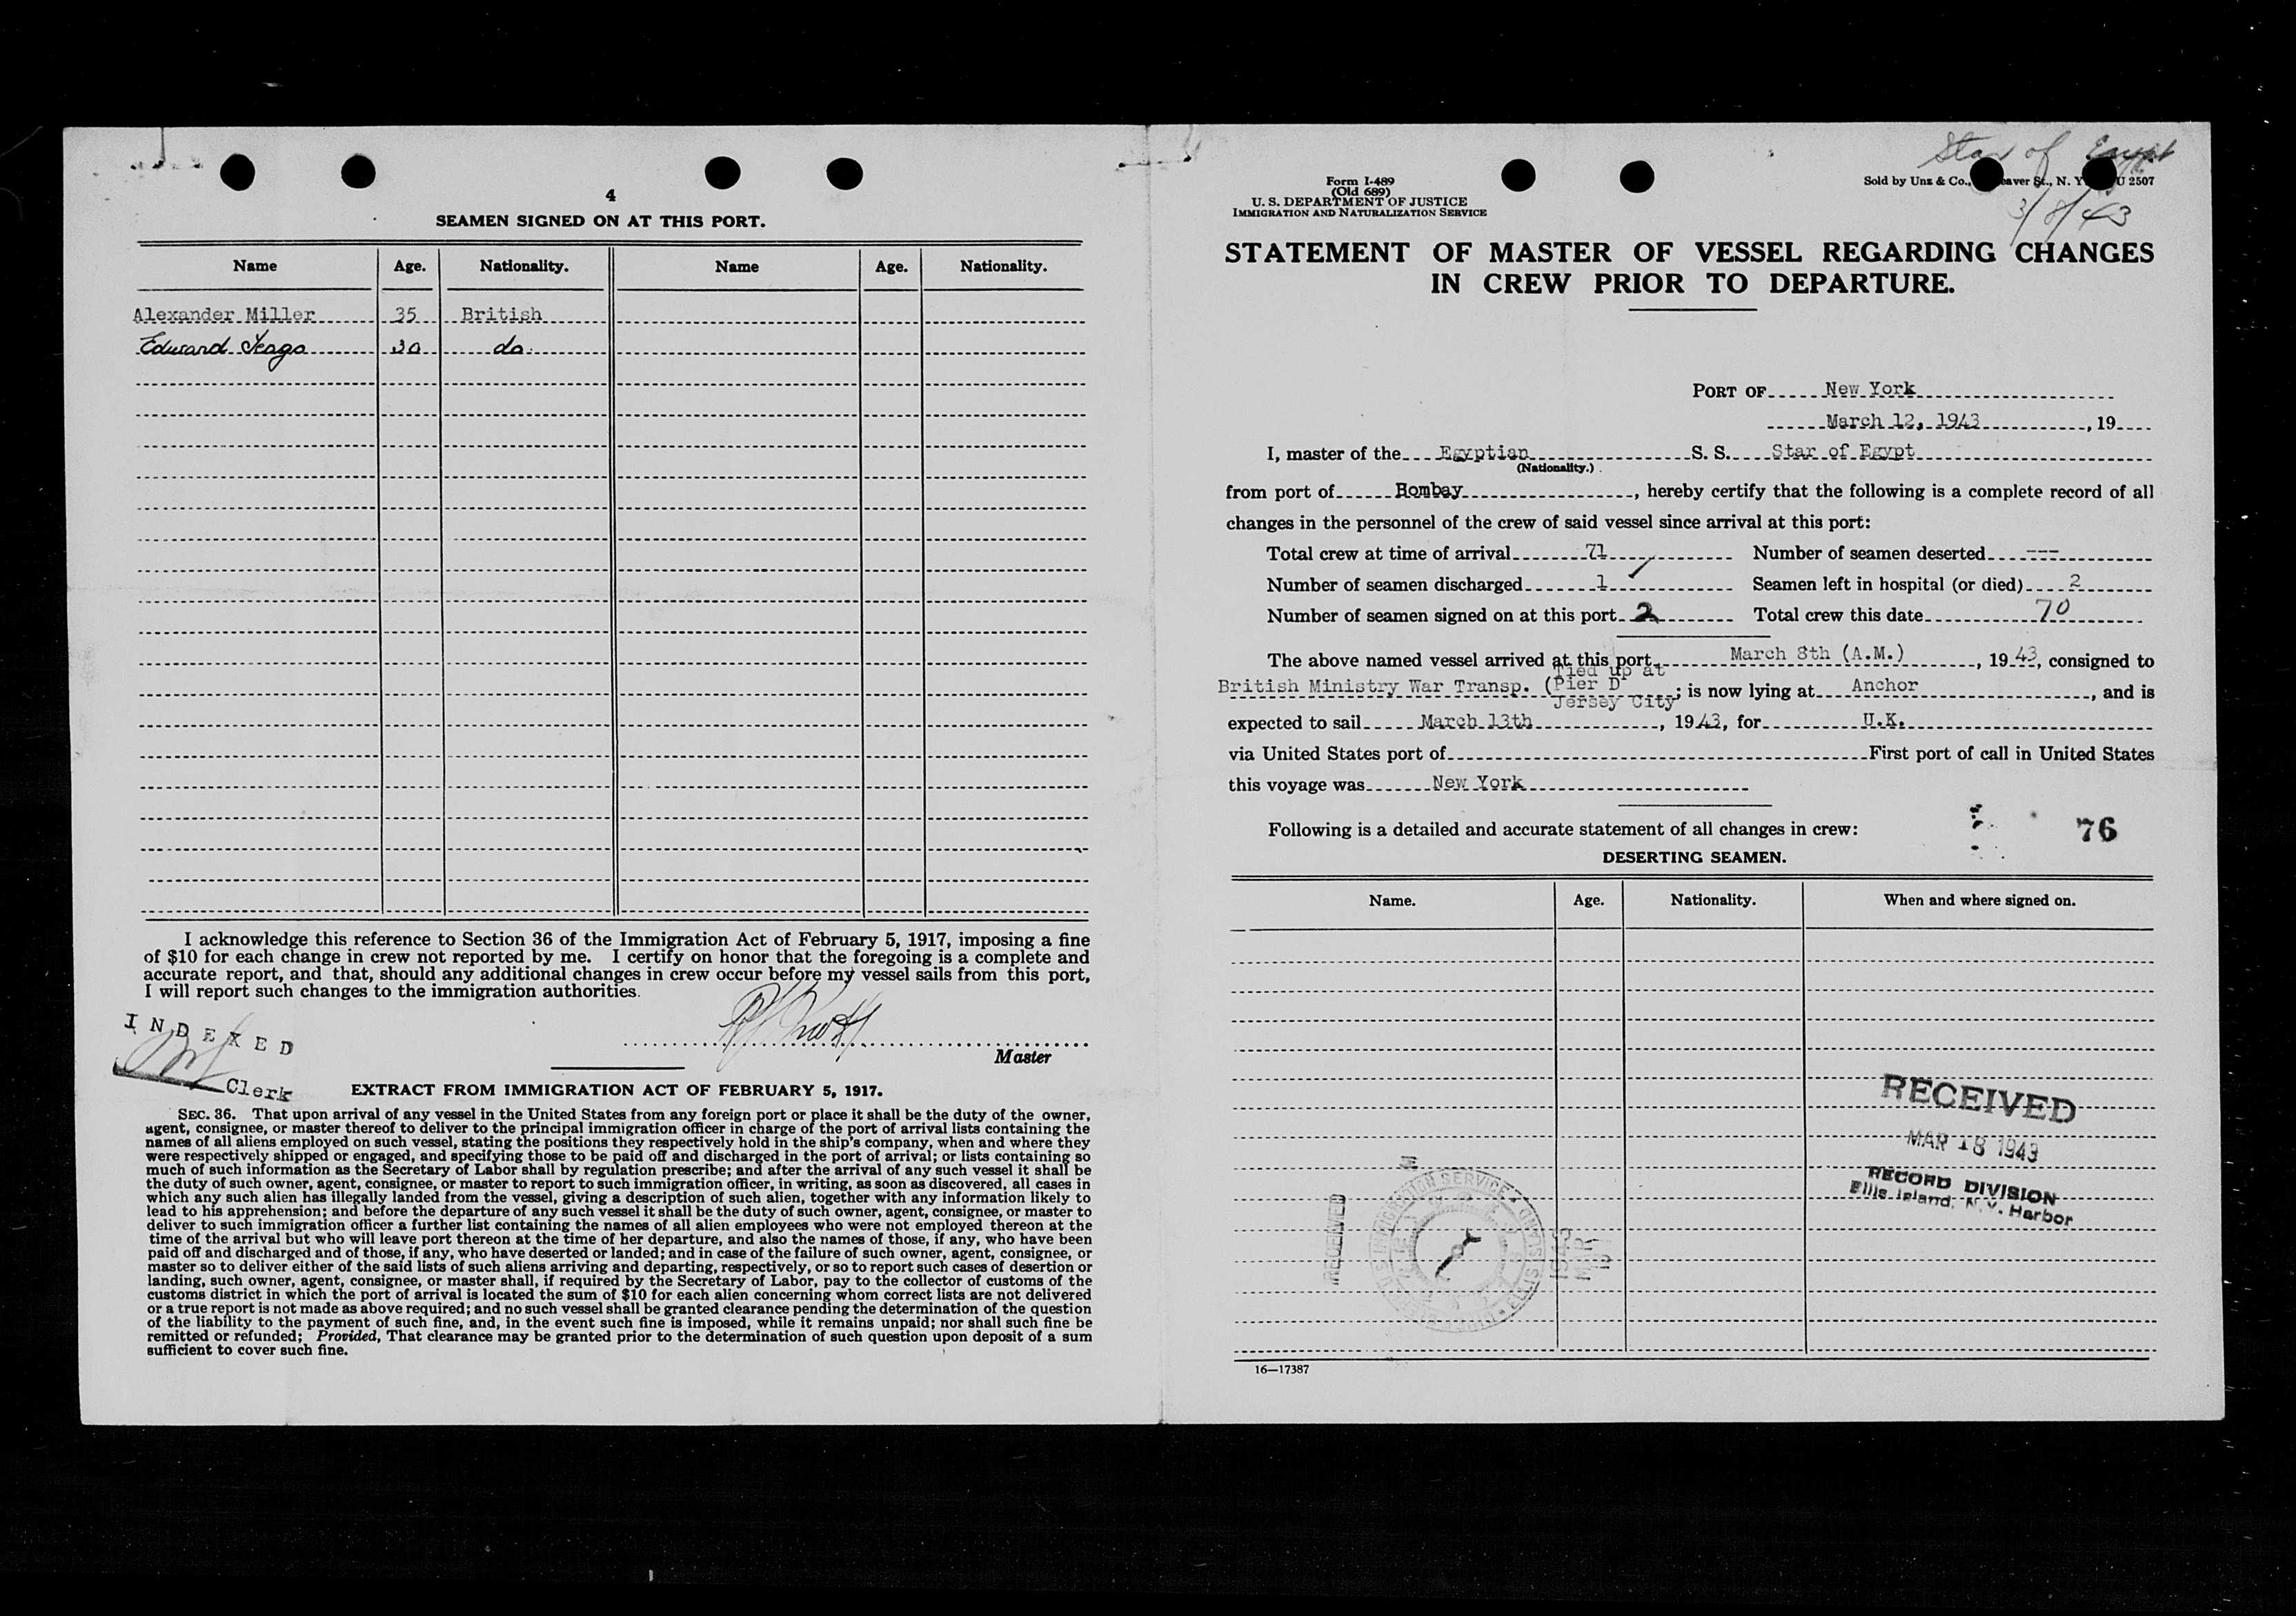 4
SEAMEN SIGNED ON AT THIS PORT.
Name Age. Nationality. Name Age. Nationality.
Alexander Miller 35 British
Edward 30 do.
I acknowledge this reference to Section 36 of the Immigration Act of February 5, 1917, imposing a fine
of $10 for each change in crew not reported by me. I certify on honor that the foregoing is a complete and
accurate report, and that, should any additional changes in crew occur before my vessel sails from this port,
I will report such changes to the immigration authorities.
Master
INDEXED
Clerk
EXTRACT FROM IMMIGRATION ACT OF FEBRUARY 5, 1917.
SEC. 36. That upon arrival of any vessel in the United States from any foreign port or place it shall be the duty of the owner,
agent, consignee, or master thereof to deliver to the principal immigration officer in charge of the port of arrival lists containing the
names of all aliens employed on such vessel, stating the positions they respectively hold in the ship's company, when and where they
were respectively shipped or engaged, and specifying those to be paid off and discharged in the port of arrival; or lists containing so
much of such information as the Secretary of Labor shall by regulation prescribe; and after the arrival of any such vessel it shall be
the duty of such owner, agent, consignee, or master to report to such immigration officer, in writing, as soon as discovered, all cases in
which any such alien has illegally landed from the vessel, giving a description of such alien, together with any information likely to
lead to his apprehension; and before the departure of any such vessel it shall be the duty of such owner, agent, consignee, or master to
deliver to such immigration officer a further list containing the names of all alien employees who were not employed thereon at the
time of the arrival but who will leave port thereon at the time of her departure, and also the names of those, if any, who have been
paid off and discharged and of those, if any, who have deserted or landed; and in case of the failure of such owner, agent, consignee, or
master so to deliver either of the said lists of such aliens arriving and departing, respectively, or so to report such cases of desertion or
landing, such owner, agent, consignee, or master shall, if required by the Secretary of Labor, pay to the collector of customs of the
customs district in which the port of arrival is located the sum of $10 for each alien concerning whom correct lists are not delivered
or a true report is not made as above required; and no such vessel shall be granted clearance pending the determination of the question
of the liability to the payment of such fine, and, in the event such fine is imposed, while it remains unpaid; nor shall such fine be
remitted or refunded; Provided, That clearance may be granted prior to the determination of such question upon deposit of a sum
sufficient to cover such fine.
Star of Egypt
3/8/43
Form I-489
(Old 689)
U. S. DEPARTMENT OF JUSTICE
IMMIGRATION AND NATURALIZATION SERVICE
Sold by Unz & Co., St., N. Y. 2507
STATEMENT OF MASTER OF VESSEL REGARDING CHANGES
IN CREW PRIOR TO DEPARTURE.
PORT OF New York
March 12, 1943, 19
I, master of the Egyptian S. S. Star of Egypt
(Nationality.)
from port of Bombay, hereby certify that the following is a complete record of all
changes in the personnel of the crew of said vessel since arrival at this port:
Total crew at time of arrival 71 Number of seamen deserted ---
Number of seamen discharged 1 Seamen left in hospital (or died) 2
Number of seamen signed on at this port 2 Total crew this date 70
The above named vessel arrived at this port March 8th (A.M.), 1943, consigned to
Tied up at
British Ministry War Transp. (Pier D; is now lying at Anchor, and is
Jersey City
expected to sail March 13th, 1943, for U.K.
via United States port of First port of call in United States
this voyage was New York
Following is a detailed and accurate statement of all changes in crew:
76
DESERTING SEAMEN.
Name. Age. Nationality. When and where signed on.
RECEIVED
MAR 18 1943
RECORD DIVISION
Ellis Island, N.Y. Harbor
RECEIVED
1943
MAR
16—17387